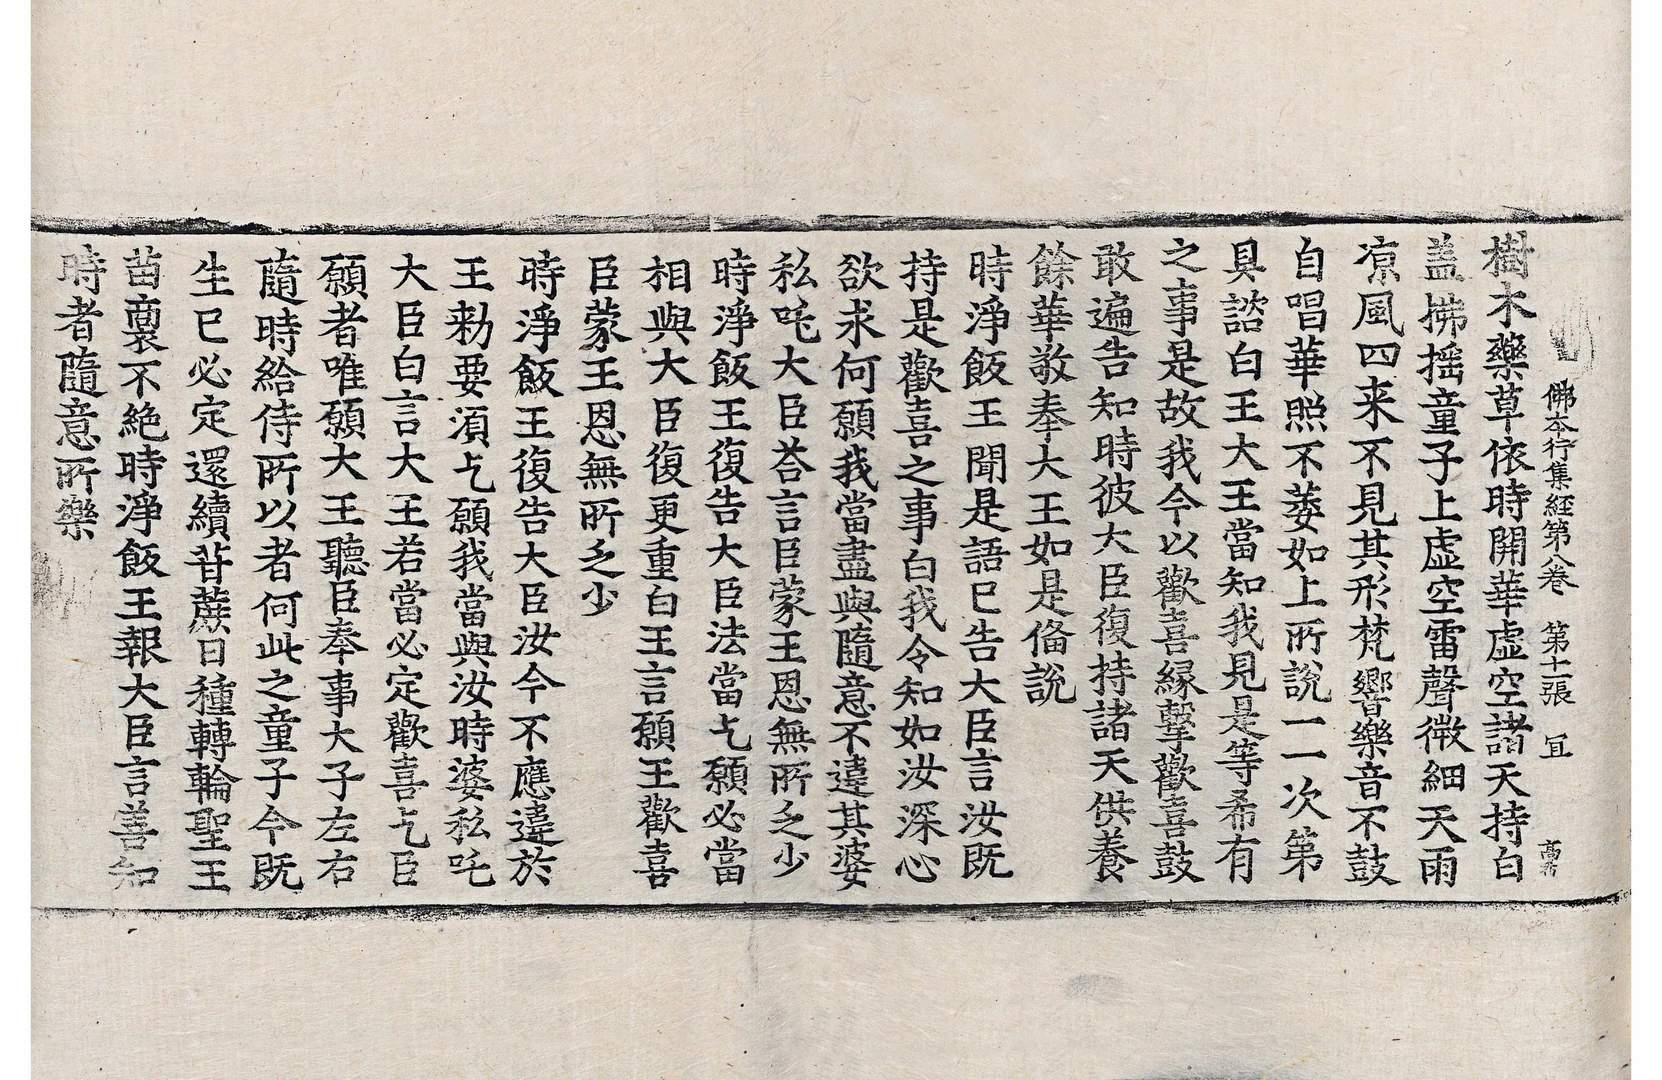 佛本行集經第八卷 第十一張 宜
樹木藥草依時開華虛空諸天持白
盖拂揺童子上虛空雷聲微細天雨
凉風四来不見其形梵響樂音不鼓
自唱華照不萎如上所說一一次第
具諮白王大王當知我見是等希有
之事是故我今以歡喜緣擊歡喜鼓
敢遍告知時彼大臣復持諸天供養
餘華敬奉大王如是俻說
時淨飯王聞是語已告大臣言汝既
持是歡喜之事白我令知如汝深心
欲求何願我當盡與隨意不違其婆
私吒大臣荅言臣蒙王恩無所乏少
時淨飯王復告大臣法當乞願必當
相與大臣復更重白王言願王歡喜
臣蒙王恩無所乏少
時淨飯王復告大臣汝今不應違於
王勑要湏乞願我當與汝時婆私吒
大臣白言大王若當必定歡喜乞臣
願者唯願大王聽臣奉事大子左右
隨時給侍所以者何此之童子今既
生已必定還續苷蔗日種轉輪聖王
苗裔不絶時淨飯王報大臣言善知
時者隨意所樂